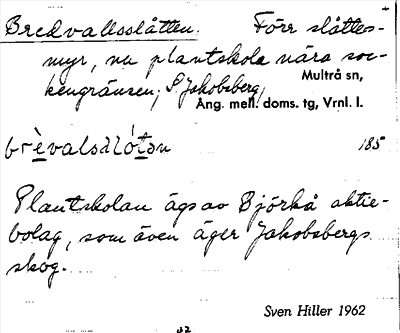 Bredvallsslåtten. Förr slåttes-
myr, nu plantskola nära soc-
kengränsen; S. Jakobsberg,
Multrå sn,
Ång. mell. doms. tg, Vrnl. l.
185
Plantskolan ägs av Björkå aktie-
bolag, som även äger Jakobsbergs
skog.
Sven Hiller 1962